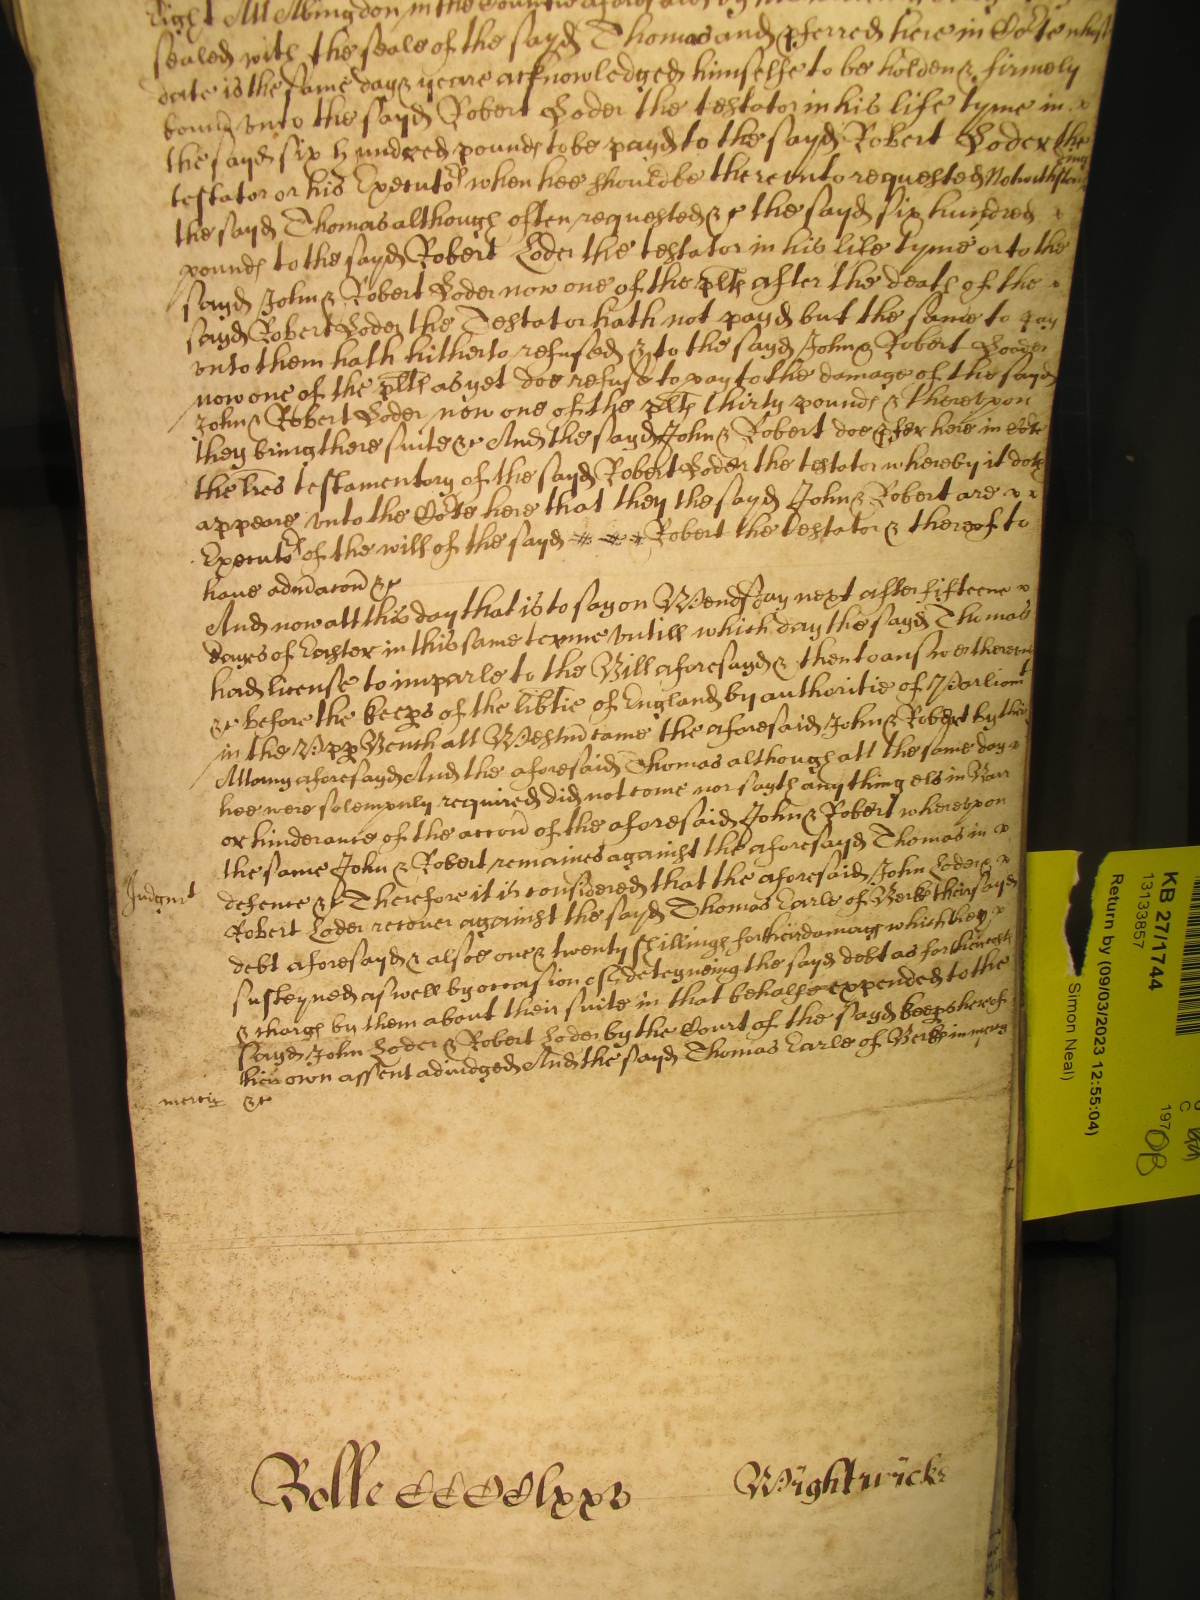 right Att Abingdon in the Countie aforesaid by
sealed with the seale of the sayd Thomas and pferred here in Cōrte whose
date is the same day & yeare acknowledged himselfe to be holden & firmely
bound vnto the sayd Robert Loder the testator in his life tyme in
the sayd six hundred pounds to be payd to the sayd Robert Loder the
testator or his Executors when hee should be therevnto requested Notwithstanding
the sayd Thomas although often requested &c the sayd six hundred
pounds to the sayd Robert Loder the testator in his life tyme or to the
sayd John & Robert Loder now one of the plts after the death of the
sayd Robert Loder the Testator hath not payd but the same to pay
vnto them hath hitherto refused & to the sayd John & Robert Loder
now one of the plts as yet doe refuse to pay to the damage of the sayd
John & Robert Loder now one of the plts thirty pounds & therevpon
they bring there suite &c And the sayd John & Robert doe pfer here in Cōrte
the lres testamentory of the sayd Robert Loder the testator whereby it doth
appeare vnto the Cōrte here that they the sayd John & Robert are
Executors of the will of the sayd Robert the testator & thereof to
haue admacon &c
And now att this day that is to say on Wendsday next after fifteene
dayes of Easter in this same terme vntill which day the sayd Thomas
had license to imparle to the Bill aforesayd & then to answer therevnto
&c before the keeps of the libtie of England by authoritie of Parliamt
in the Vpp Bench att Westm came the aforesaid John & Robert by their
Attorny aforesayd And the aforesaid Thomas although att the same day
hee were solempnly required did not come nor sayth anything els in Barr
or hinderance of the accon of the aforesaid John & Robert wherevpon
the same John & Robert remaines against the aforesayd Thomas in
Judgmt defence &c Therefore it is considered that the aforesaid John Loder &
Robert Loder recouer against the sayd Thomas Earle of Berks their sayd
debt aforesayd & alsoe one & twenty shillings for their damags which they
susteyned aswell by occasion of deteyneing the sayd debt as for their costs
& chargs by them about their suite in that behalfe expended to the
sayd John Loder & Robert Loder by the Court of the sayd keeps here of
their own assent adiudged And the sayd Thomas Earle of Berks in mercy
mercie &c
Rolle CCCClxxv Wightwicke
KB 27/1744
13133857
Return by (09/03/2023 12:55:04)
Simon Neal)